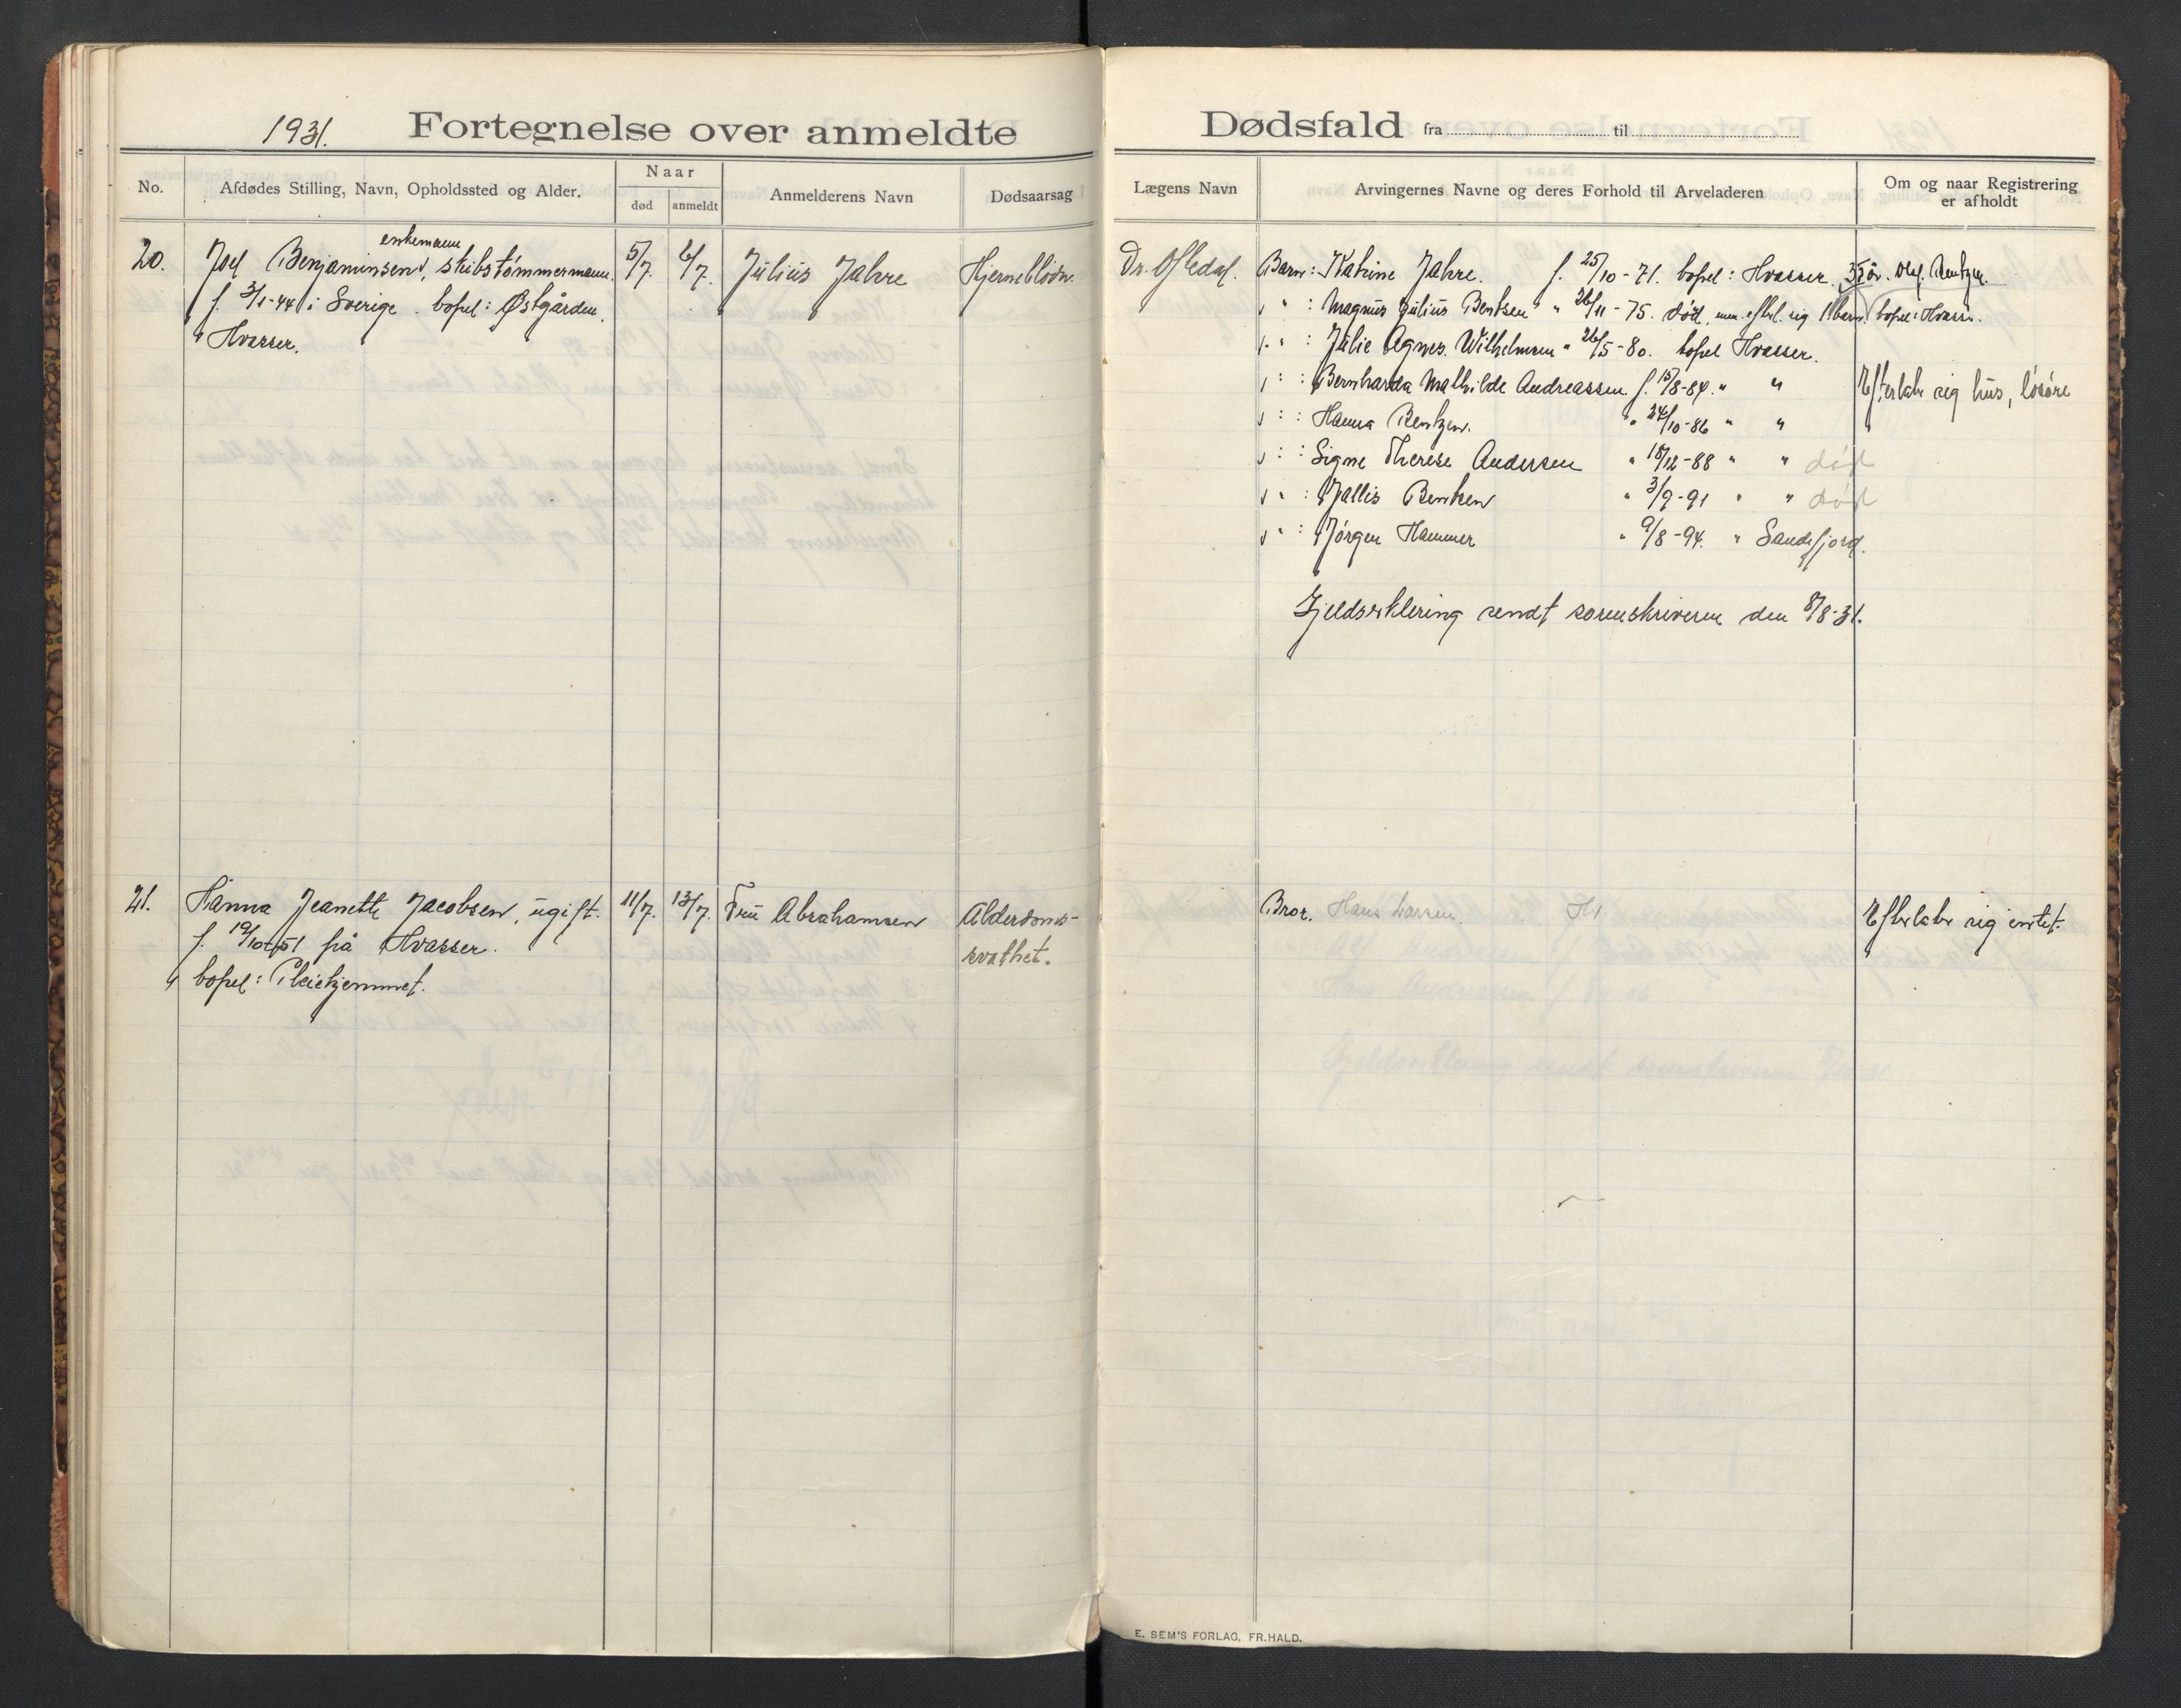 1931. Fortegnelse over anmeldte
No.
Afdødes Stilling, Navn, Opholdssted og Alder.
Naar
død
anmeldt
Anmelderens Navn
Dødsaarsag
20.
enkemann
Joel Benjaminsen, skibstømmermann.
f. 3/1-44 i Sverige. bopel: Østgården.
Hvasser.
5/7.
6/7.
Julius Jahre
Hjerneblødn.
21.
Hanna Jeanette Jacobsen, ugift.
f. 19/10-51 på Hvasser.
bopel: Pleiehjemmet.
11/7.
13/7.
Fru Abrahamsen
Alderdoms-
svakhet.
Dødsfald fra til
Lægens Navn
Arvingernes Navne og deres Forhold til Arveladeren
Om og naar Registrering
er afholdt
Dr. Oftedal.
Barn: Katrine Jahre. f. 25/10-71. bopel: Hvasser. 35 år. Olaf Bentzen.
" : Magnus Julius Bentsen " 26/11-75. død, men efterl. sig 1 barn. bopel: Hvasser.
" : Julie Agnes Wilhelmsen " 26/5-80. bopel Hvasser.
" : Bernharda Mathilde Andreassen f. 15/8-84. " "
" : Hanna Bentzen. " 24/10-86 " "
" : Signe Therese Andersen " 18/12-88 " " død
" : Jallis Bentsen " 3/9-91 " " død
" : Jørgen Hammer " 9/8-94. " Sandefjord.
Efterlater sig hus, løsøre
Gjeldserklering sendt sorenskriveren den 8/8-31.
Bror. Hans Larsen.
Efterlater sig intet.
E. SEM'S FORLAG, FR.HALD.